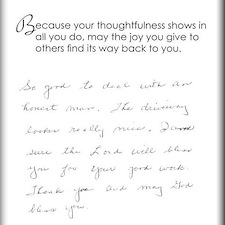 Because your thoughtfulness shows in
all you do, may the joy you give to
others find its way back to you.
So good to deal with an
honest man. The driveway
looks really nice. I am
sure the Lord will bless
you for your good work.
Thank you and may God
bless you.